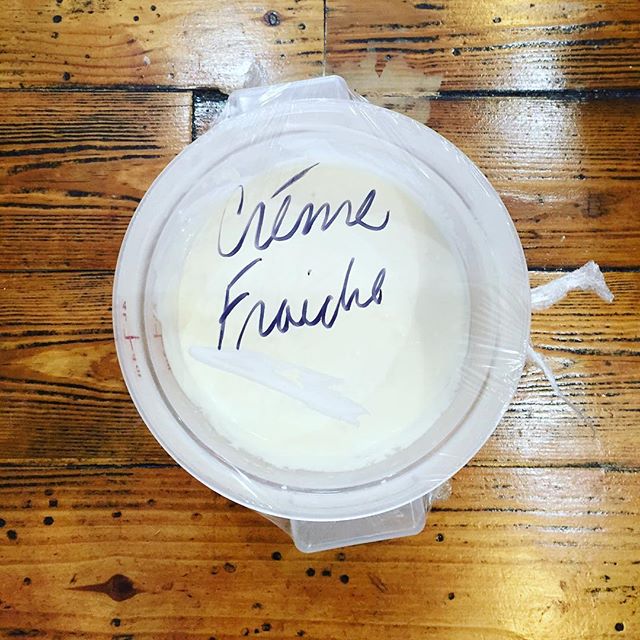 Créme
Fraiche